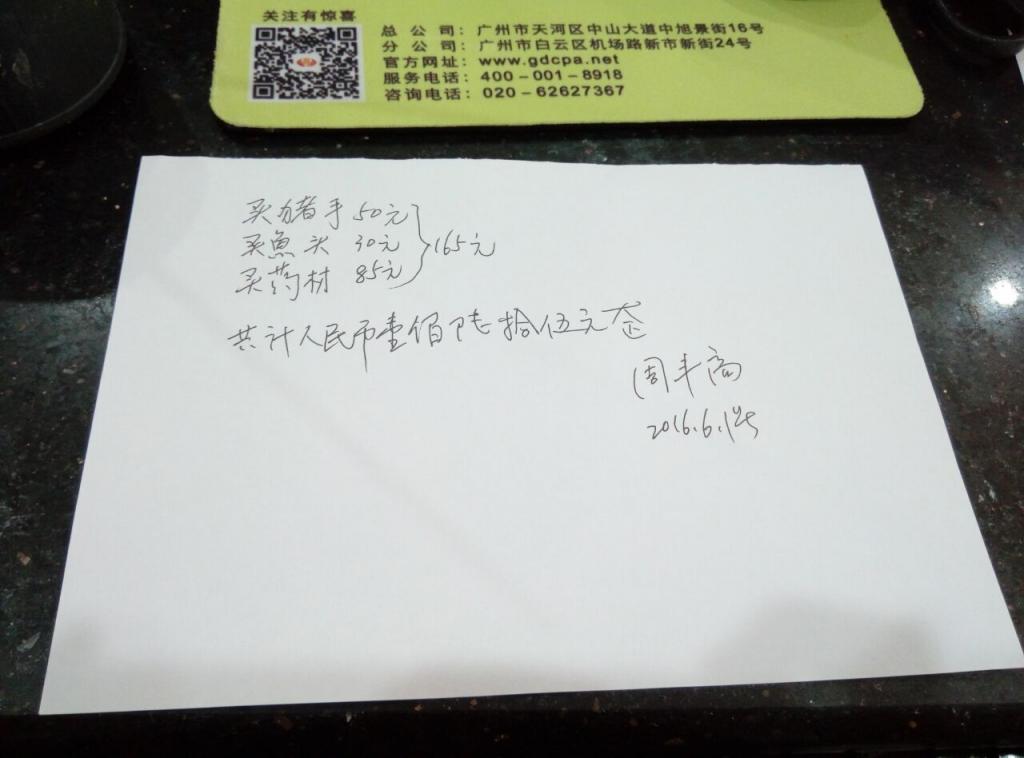 关注有惊喜
总 公 司：广州市天河区中山大道中旭景街16号
分 公 司：广州市白云区机场路新市新街24号
官方网址：www.gdcpa.net
服务电话：400-001-8918
咨询电话：020-62627367
买猪手 50元
买魚头 30元
买药材 85元
165元
共计人民币壹佰陆拾伍元
周丰高
2016.6.